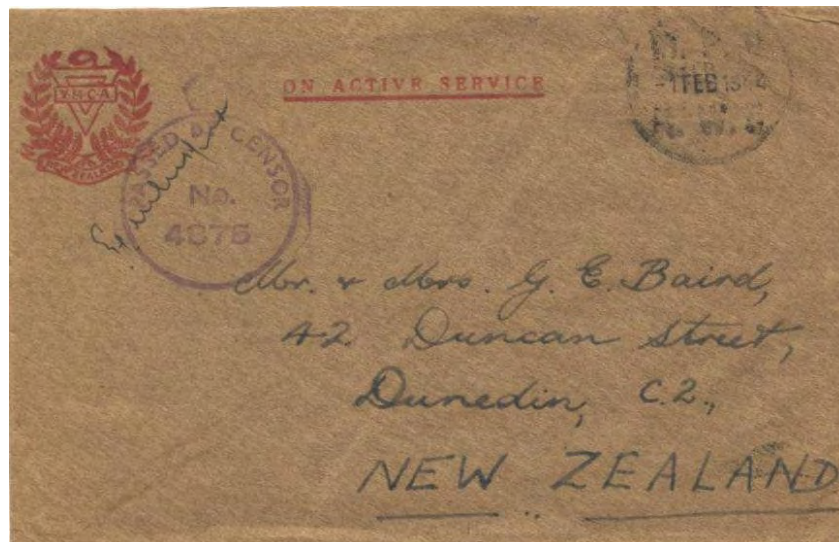 Y.M.C.A
NEW ZEALAND
ON ACTIVE SERVICE
-1 FEB 194
PASSED BY CENSOR
No.
4875
Mr. & Mrs. G. E. Baird,
42 Duncan Street,
Dunedin, C.2.,
NEW ZEALAND